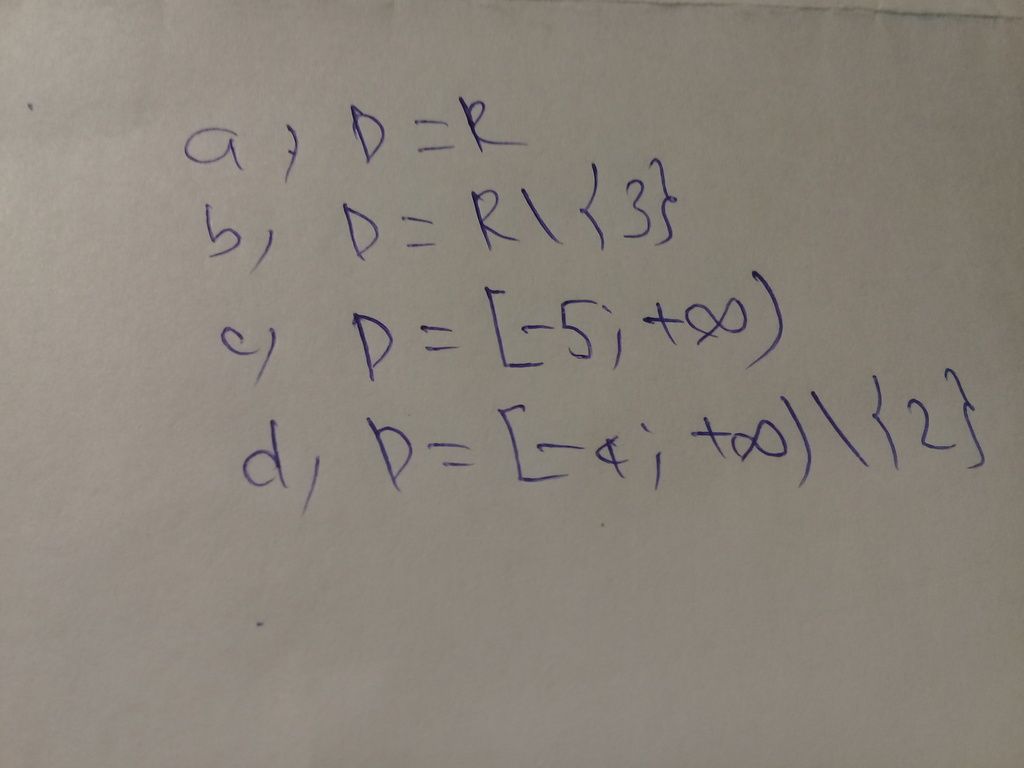 a, D = R
b, D = R \ {3}
c, D = [-5; +∞)
d, D = [-4; +∞) \ {2}